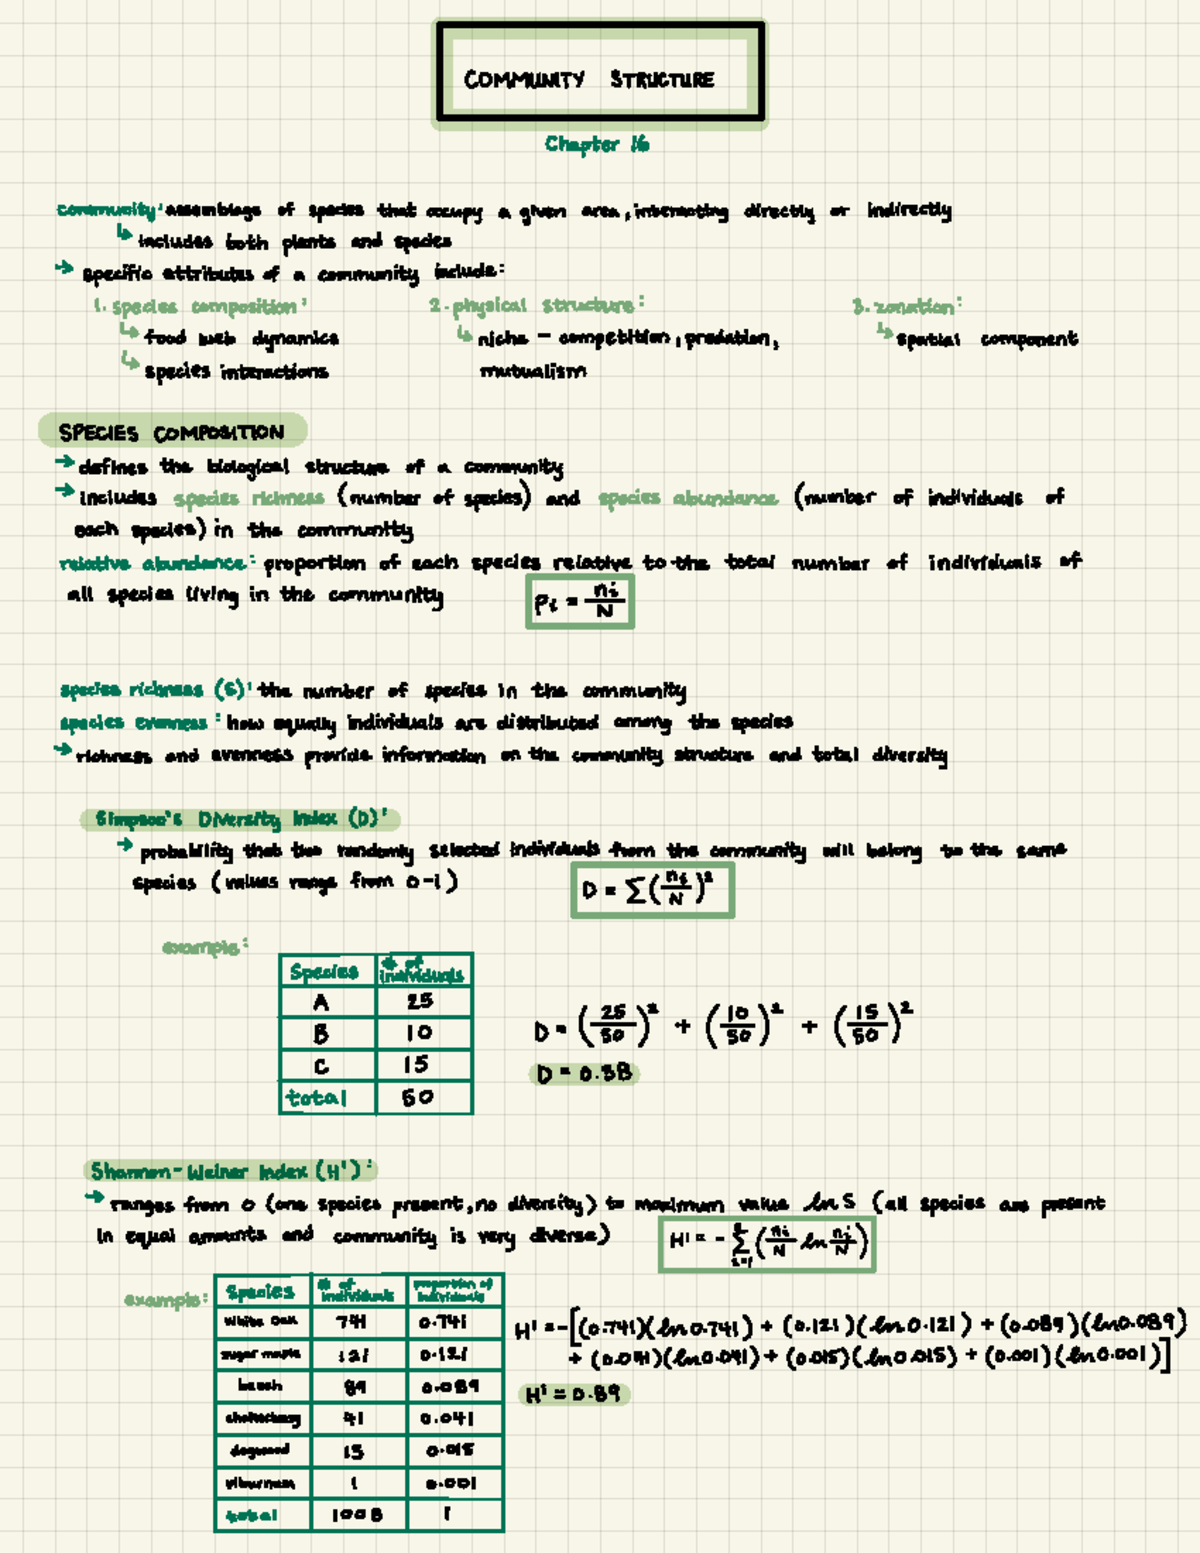 COMMUNITY STRUCTURE
Chapter 16
community: assemblage of species that occupy a given area, interacting directly or indirectly
↳ includes both plants and species
→ specific attributes of a community include:
1. species composition: 2. physical structure: 3. zonation:
↳ food web dynamics ↳ niche - competition, predation, ↳ spatial component
↳ species interactions mutualism
SPECIES COMPOSITION
→ defines the biological structure of a community
→ includes species richness (number of species) and species abundance (number of individuals of
each species) in the community
relative abundance: proportion of each species relative to the total number of individuals of
all species living in the community pi = ni/N
species richness (S): the number of species in the community
species evenness: how equally individuals are distributed among the species
→ richness and evenness provide information on the community structure and total diversity
Simpson's Diversity Index (D):
→ probability that two randomly selected individuals from the community will belong to the same
species (values range from 0-1) D = Σ(ni/N)²
example:
Species # of individuals
A 25
B 10
C 15
total 50
D = (25/50)² + (10/50)² + (15/50)²
D = 0.38
Shannon-Weiner Index (H'):
→ ranges from 0 (one species present, no diversity) to maximum value ln S (all species are present
in equal amounts and community is very diverse) H' = - Σ i=1 (ni/N ln ni/N)
example:
Species # of individuals proportion of individuals
White Oak 741 0.741
sugar maple 121 0.121
beech 89 0.089
chokecherry 41 0.041
dogwood 15 0.015
viburnum 1 0.001
total 1008 1
H' = -[(0.741)(ln 0.741) + (0.121)(ln 0.121) + (0.089)(ln 0.089)
+ (0.041)(ln 0.041) + (0.015)(ln 0.015) + (0.001)(ln 0.001)]
H' = 0.89